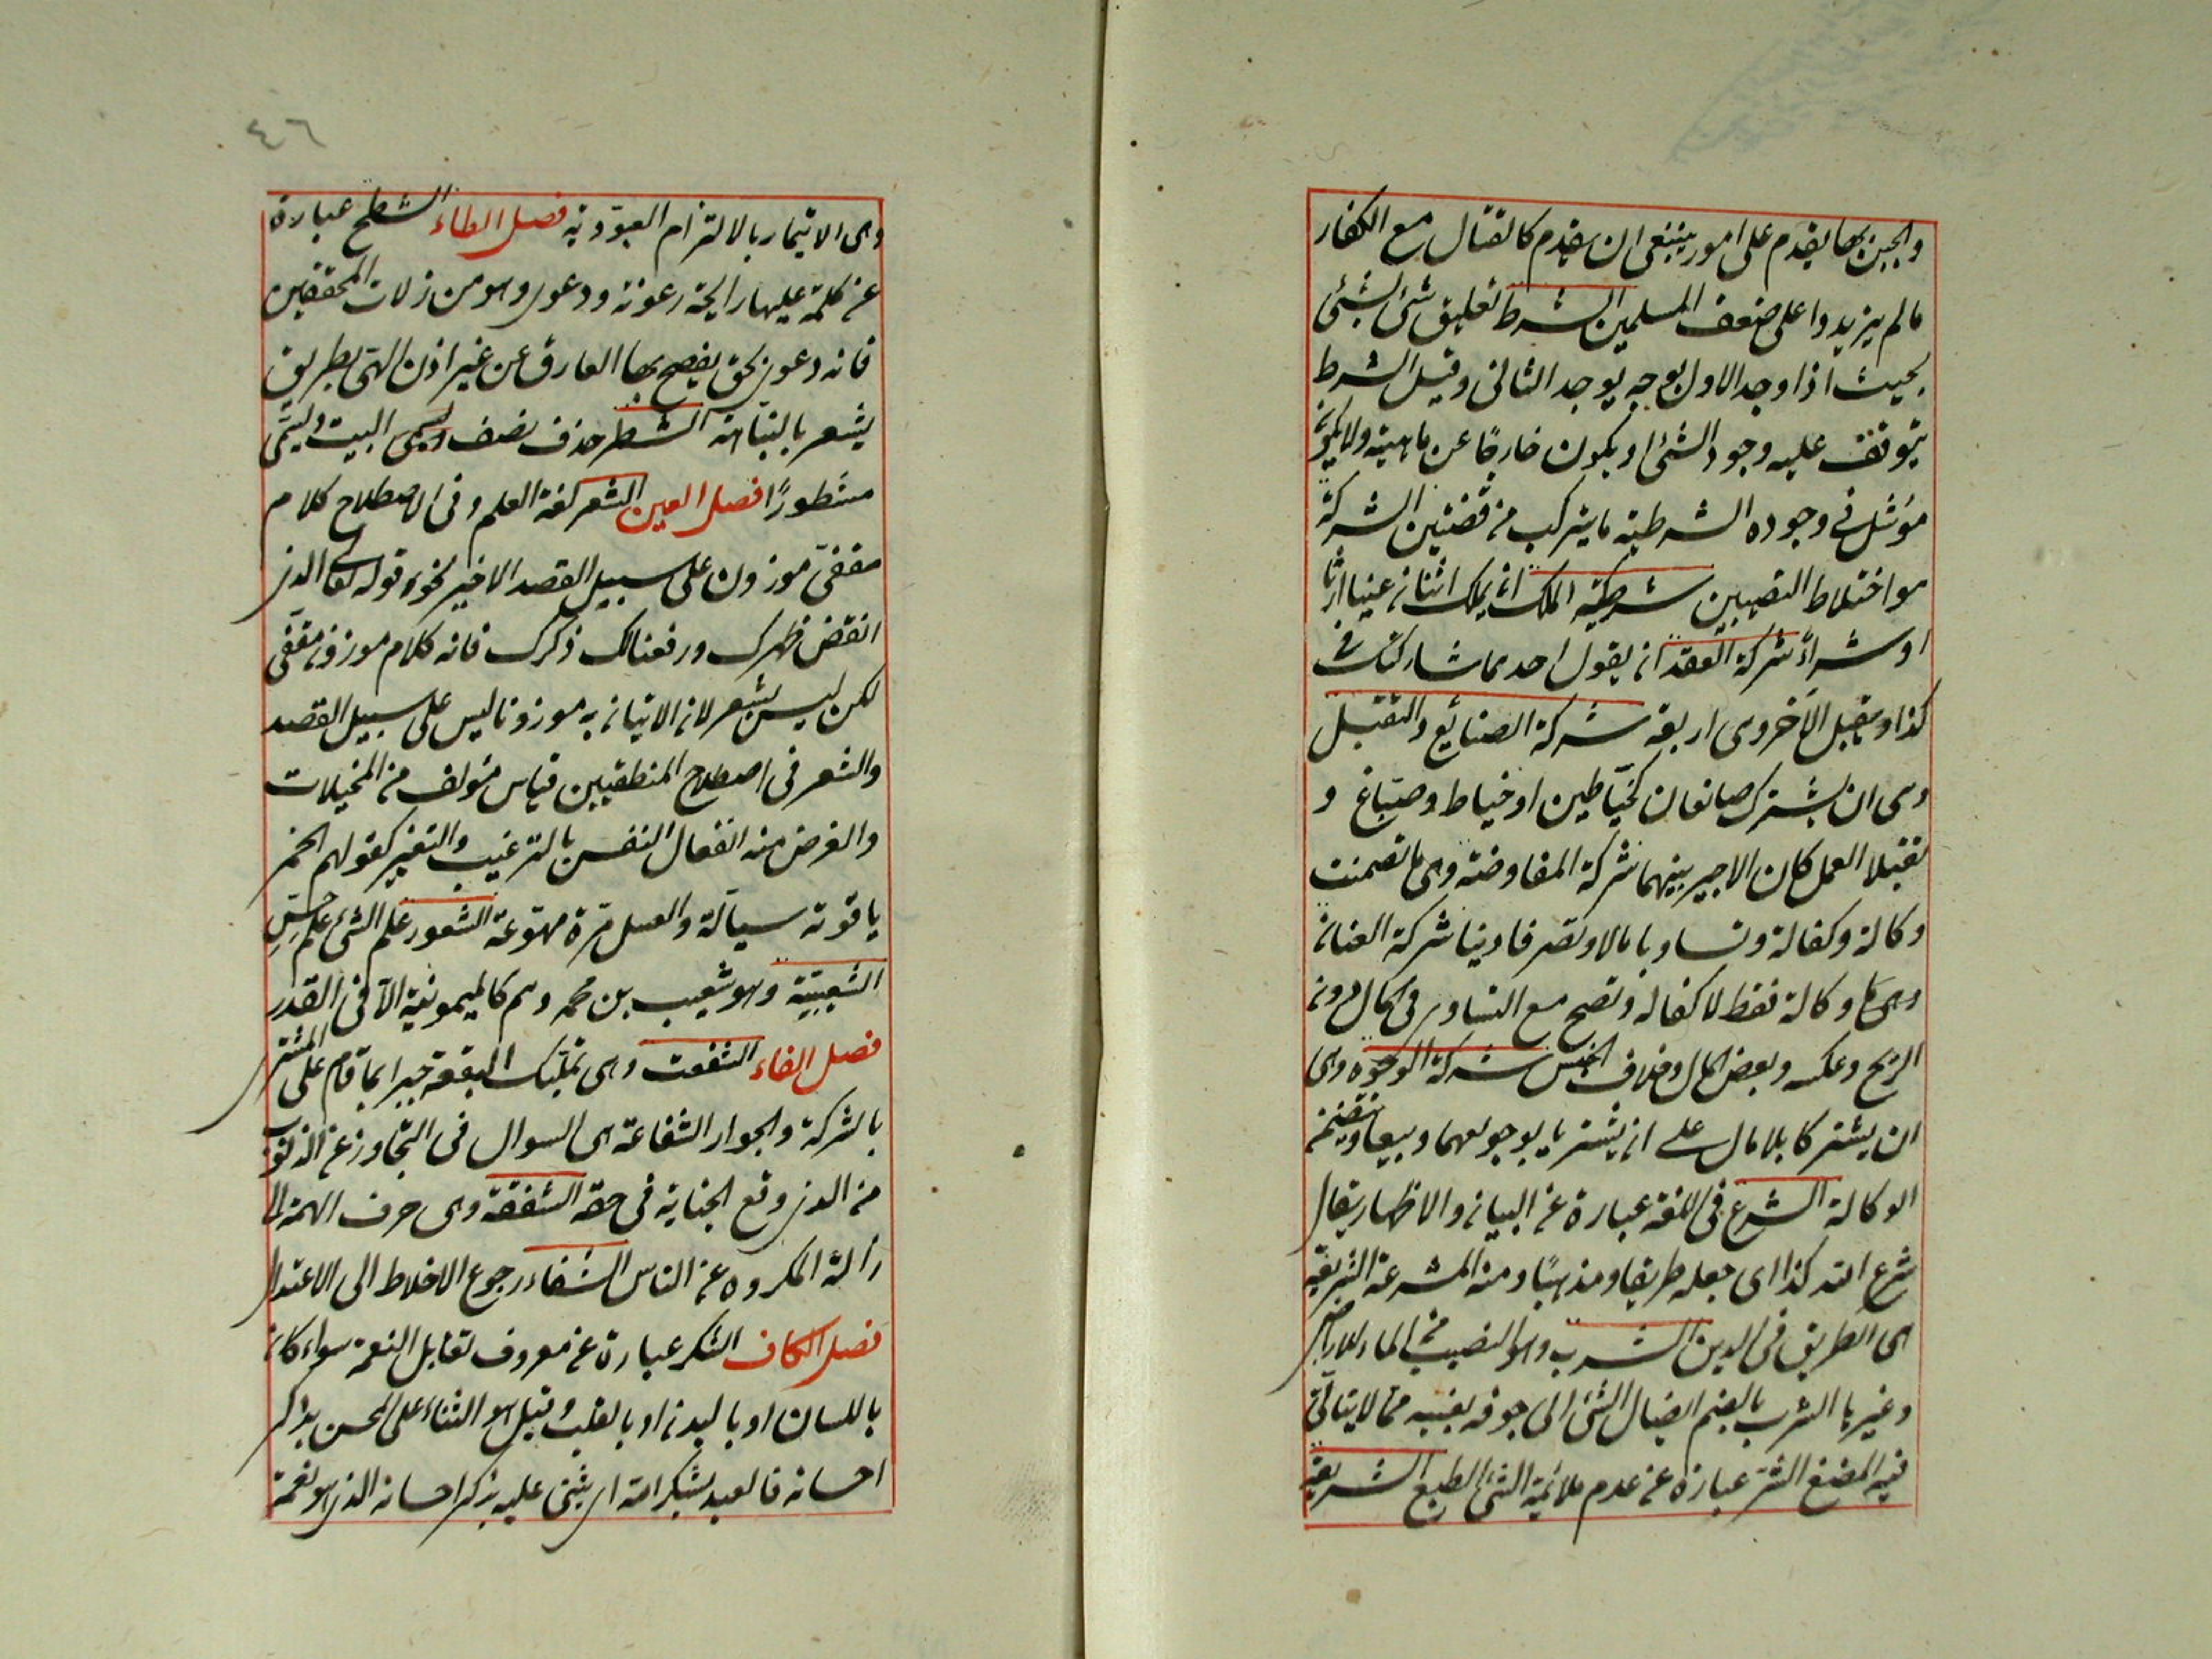 والجبن بها يقدم على امور ينبغى ان يقدم كالقتال مع الكفار
مالم يزيدوا على ضعف المسلمين الشرط تعليق شئ بشئ
بحيث اذا وجد الاول يوجد الثانى وقيل الشرط
يتوقف عليه وجود الشئ او يكون خارجًا عن ماهيته ولا يكون
مؤثرا فى وجوده الشرطية ما يتركب من قضيتين الشركة
هو اختلاط النصيبين شركة الملك ان يملك اثنان عينا ارثا
او شراءً شركة العقد ان يقول احدهما شاركتك فى
كذا ويقبل الآخر وهى اربعة شركة الصنائع والتقبل
وهى ان يشترك صانعان كخياطين او خياط وصباغ و
تقبلا العمل كان الاجير بينهما شركة المفاوضة وهى ما تضمنت
وكالة وكفالة وتساويا مالا وتصرفا ودينا شركة العنان
وهى ما وكالة فقط لا كفالة وتصح مع التساوى فى المال دون
الربح وعكسه وبعض المال وخلاف الجنس شركة الوجوه وهى
ان يشتركا بلا مال على ان يشتريا بوجوههما ويبيعا وتتضمن
الوكالة الشرع فى اللغة عبارة عن البيان والاظهار يقال
شرع الله كذا اى جعله طريقا ومذهبًا ومنه المشرعة الشريعة
هى الطريق فى الدين الشرب وهو النصيب من الماء للاراضى
وغيرها الشرب بالضم ايصال الشئ الى جوفه بفيه مما لا يتأتى
فيه المضغ الشر عبارة عن عدم ملائمة الشئ الطبع الشريعة
٤٦
وهى الايتمار بالالتزام العبودية فصل الطاء الشطح عبارة
عن كلمة عليها رايحة رعونة ودعوى وهو من زلات المحققين
فانه دعوى بحق يفصح بها العارف من غير اذن الهى بطريق
يشعر بالنباهة الشطر حذف نصف البيت ويسمى
مشطورًا فصل العين الشعر لغة العلم وفى الاصطلاح كلام
مقفى موزون على سبيل القصد الاخير نحو قوله تعالى الذى
انقض ظهرك ورفعنا لك ذكرك فانه كلام موزون مقفى
لكن ليس بشعر لان الاتيان به موزونا ليس على سبيل القصد
والشعر فى اصطلاح المنطقيين قياس مؤلف من المخيلات
والغرض منه انفعال النفس بالترغيب والتنفير كقولهم الخمر
ياقوتة سيالة والعسل مرة مهوعة الشعور علم الشئ علم حس
الشعيبية وهو شعيب بن محمد وهم كالميمونية الا فى القدر
فصل الفاء الشفعة وهى تمليك البقعة جبرا بما قام على المشترى
بالشركة والجوار الشفاعة هى السوال فى التجاوز عن الذنوب
من الذى وقع الجناية فى حقه الشفقة وهى صرف الهمة الى
ازالة المكروه عن الناس الشفاء رجوع الاخلاط الى الاعتدال
فصل الكاف الشكر عبارة عن معروف تقابل النعمة سواء كان
باللسان او باليد او بالقلب وقيل هو الثناء على المحسن بذكر
احسانه فالعبد يشكر الله اى يثنى عليه بذكر احسانه الذى هو نعمة